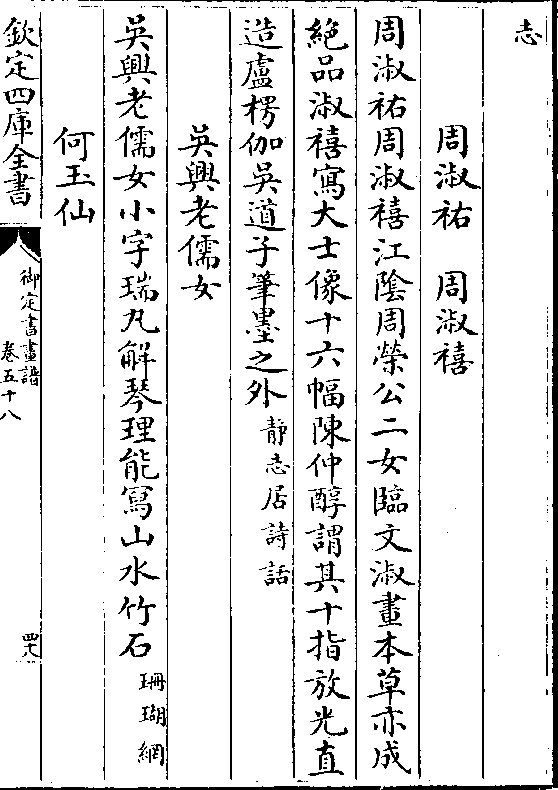 志
周淑祐　周淑禧
周淑祐周淑禧江陰周榮公二女臨文淑畫本草亦成
絶品淑禧寫大士像十六幅陳仲醇謂其十指放光直
造盧楞伽吳道子筆墨之外静志居詩話
吳興老儒女
吳興老儒女小字瑞丸解琴理能寫山水竹石珊瑚網
何玉仙
欽定四庫全書
御定書畫譜
卷五十八
四八